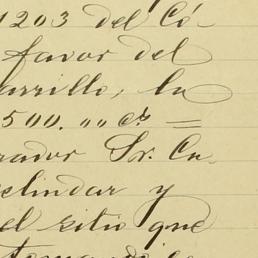 1203 del Có-
favor del
arrillo, la
500.,, cs =
rador Sr. Ca-
elindar y
el sitio que